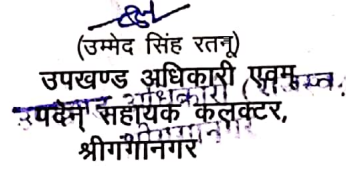 (उम्मेद सिंह रतनू)
उपखण्ड अधिकारी एवम्
पदेन सहायक कलक्टर,
श्रीगंगानगर